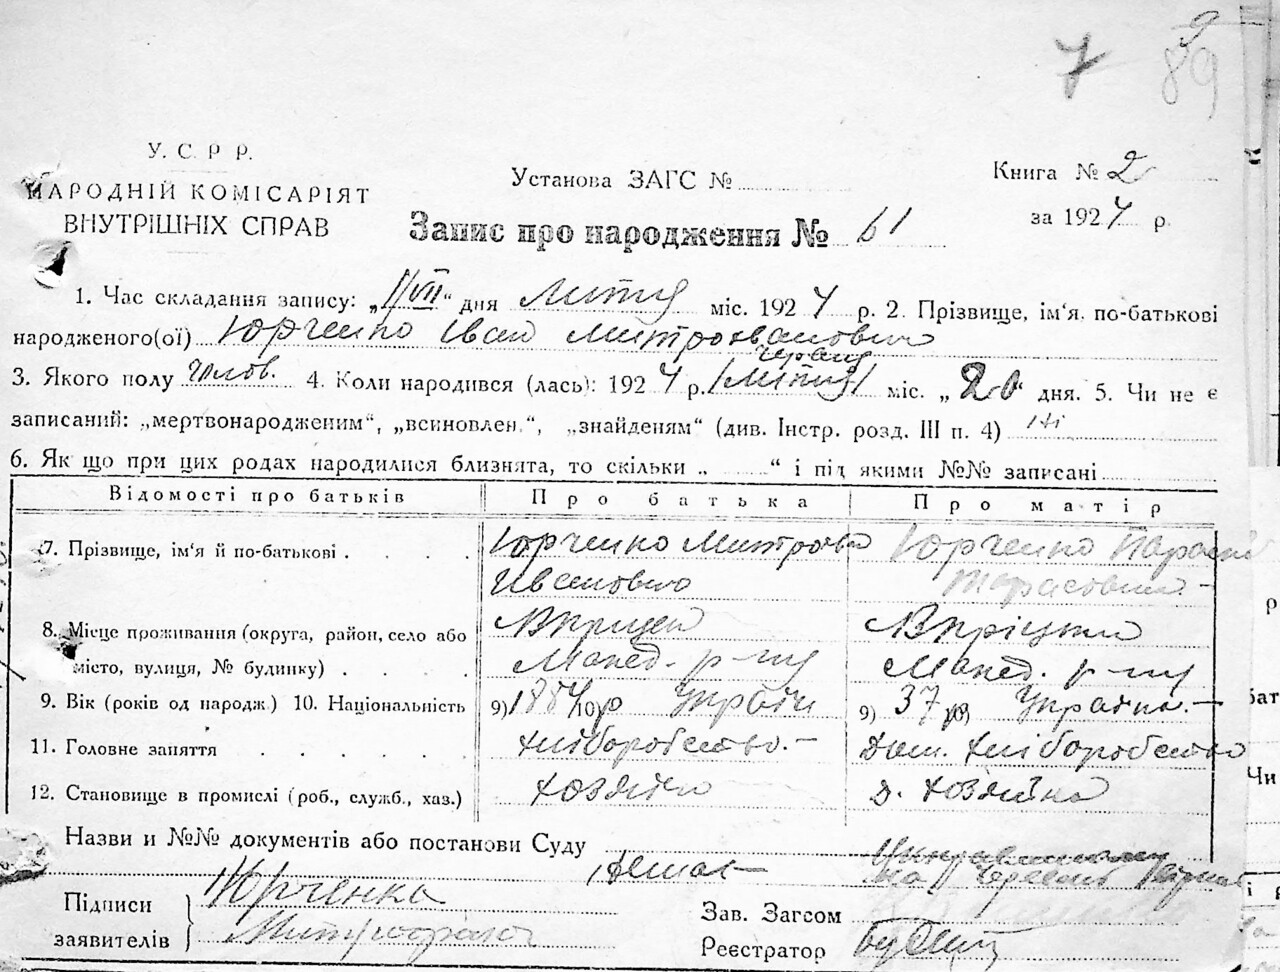 7 89
У. С. Р. Р.
НАРОДНІЙ КОМІСАРІЯТ
ВНУТРІШНІХ СПРАВ
Установа ЗАГС №
Книга № 2
за 1924 р.
Запис про народження № 61
1. Час складання запису: „ “ дня Липня міс. 1924 р. 2. Прізвище, ім'я, по-батькові
народженого(ої) Юрченко Іван Митрофанович
червня
3. Якого полу чолов. 4. Коли народився (лась): 1924 р. Липня міс. „20“ дня. 5. Чи не є
записаний: „мертвонародженим“, „всиновлен.“, „знайденям“ (див. Інстр. розд. III п. 4) ні
6. Як що при цих родах народилися близнята, то скільки „ “ і під якими №№ записані
Відомості про батьків Про батька Про матір
7. Прізвище, ім'я й по-батькові . . . . Юрченко Митрофан Юрченко Параск
Иванович Тарасовна
8. Місце проживання (округа, район, село або
місто, вулиця, № будинку) . . . . Макед. р-ну Макед. р-ну
9. Вік (років од народж.) 10. Національність 9) 10) Україн 9) 37 р. 10) Українка.-
11. Головне заняття . . . . . хліборобство.- Дом. хліборобство
12. Становище в промислі (роб., служб., хаз.) хозяїн д. хозяйка
Назви и №№ документів або постанови Суду немає
на червень
Підписи
заявителів
Юрченка
Митрофана
Зав. Загсом
Реєстратор